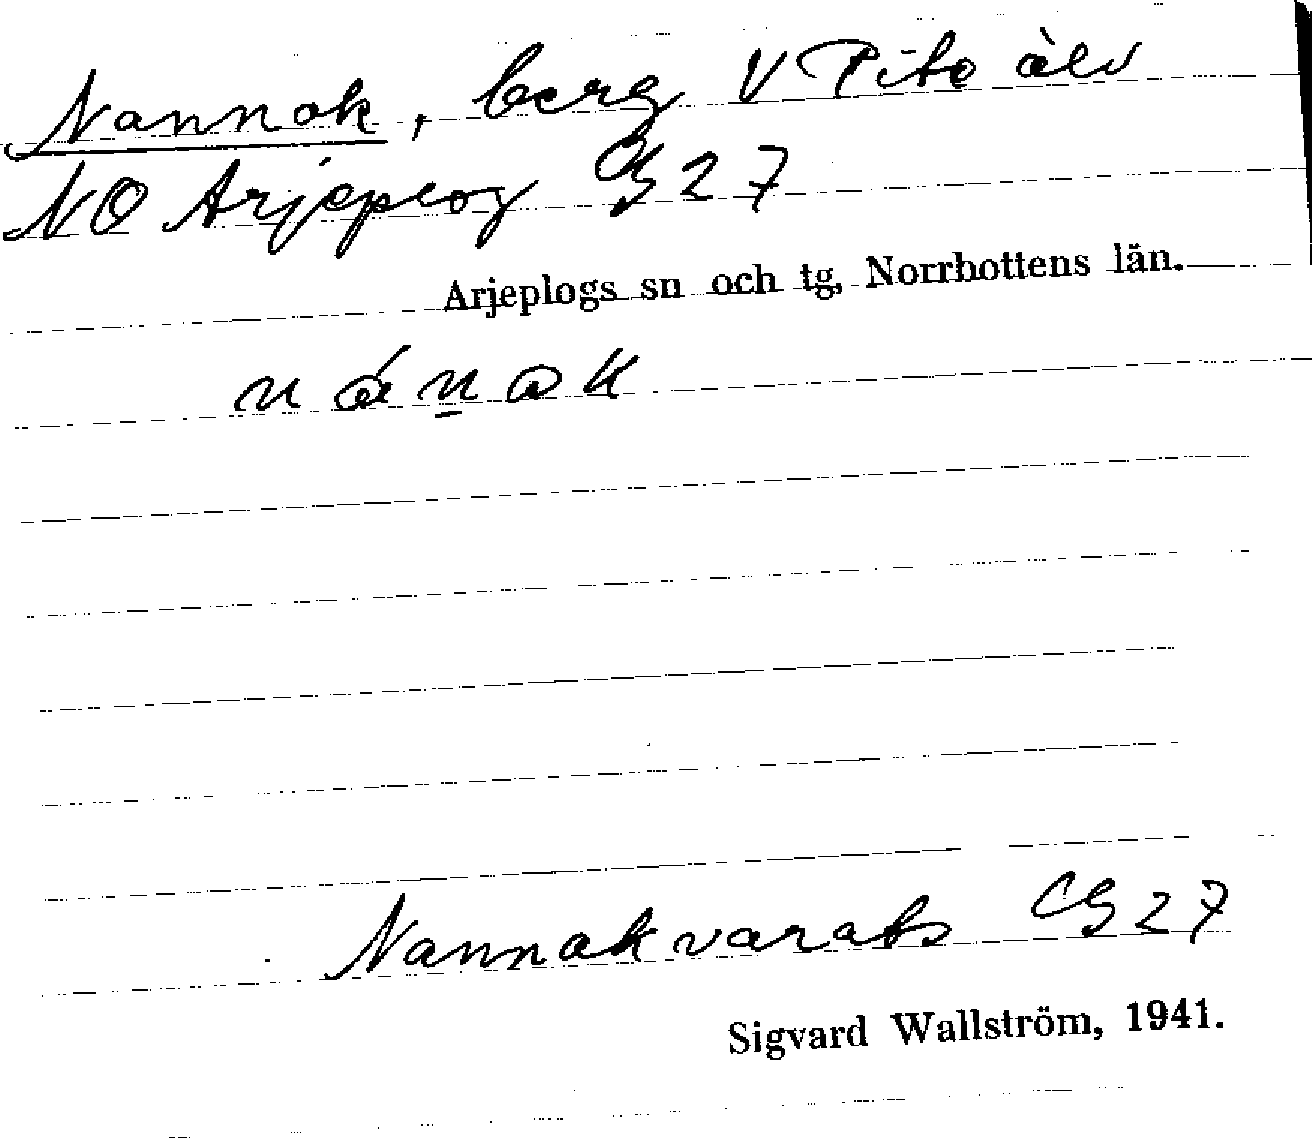 Nannak, berg V Pite älv
NO Arjeplog G 27
Arjeplogs sn och tg, Norrbottens län.
Nannakvarats G 27
Sigvard Wallström, 1941.